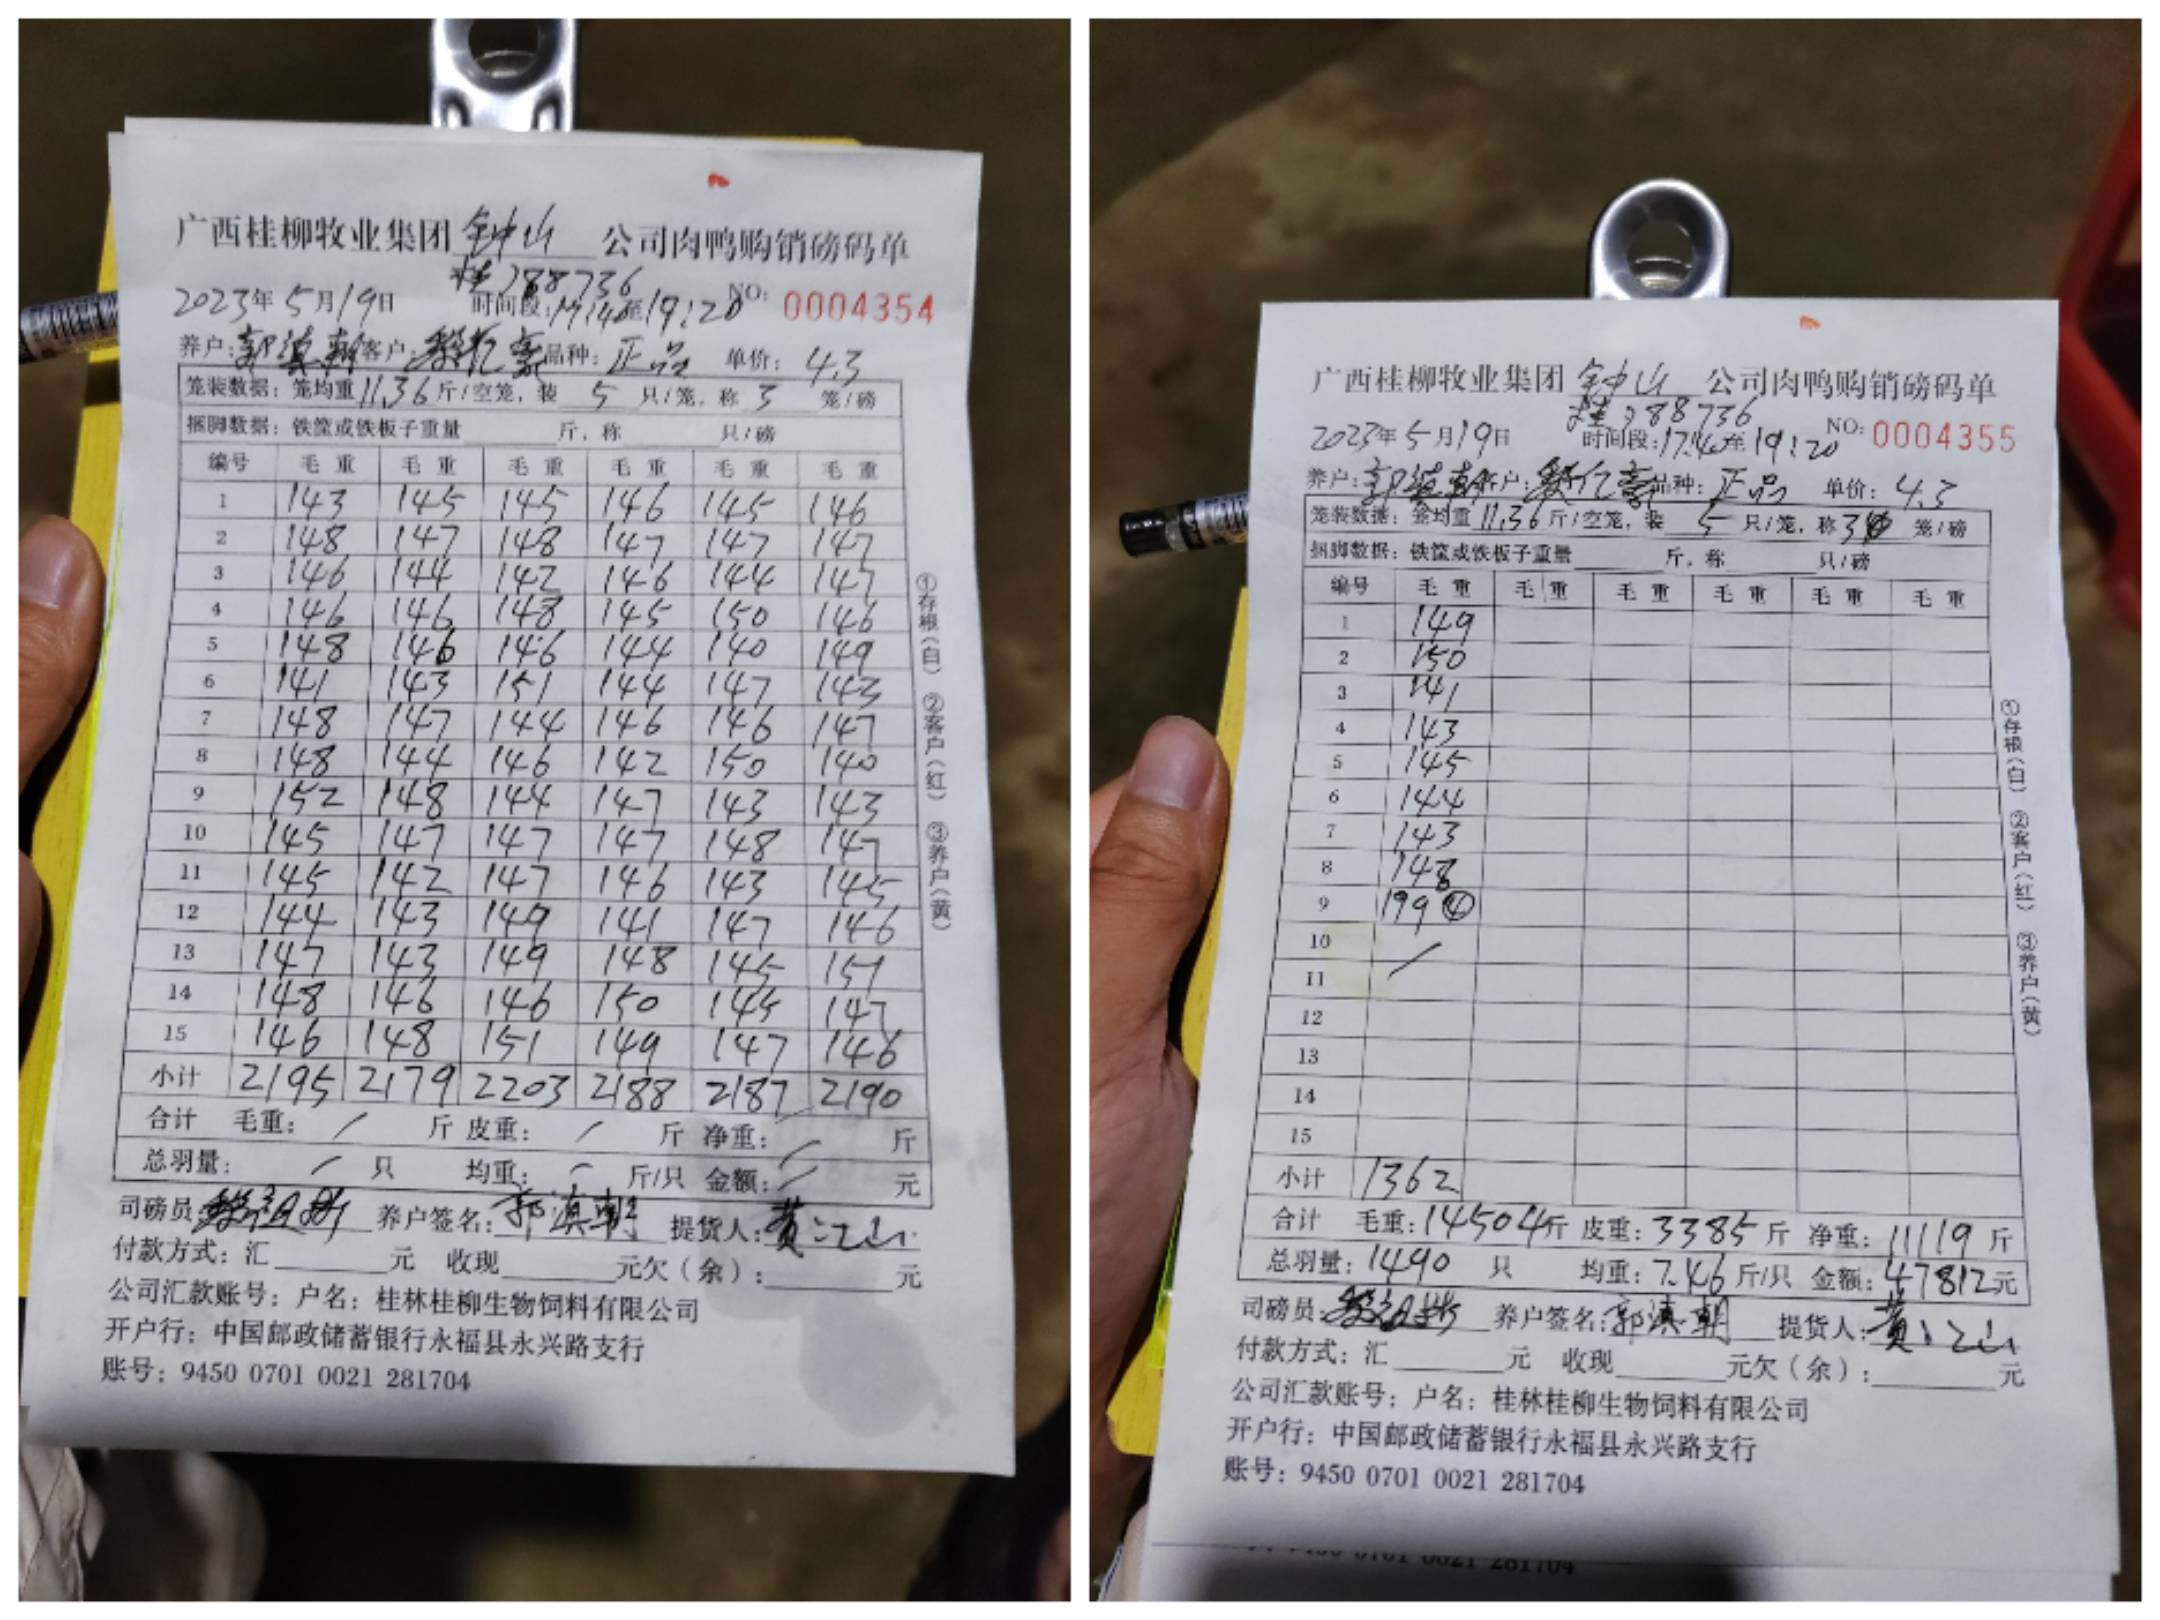 广西桂柳牧业集团 钟山 公司肉鸭购销磅码单
桂J88736
2023年5月19日 时间段:17:40至19:20 NO: 0004354
养户:郭滇朝 客户: 品种:正品 单价:4.3
笼装数据:笼均重11.36斤/空笼,装5只/笼,称3笼/磅
捆脚数据:铁筐或铁板子重量 斤,称 只/磅
编号 毛重 毛重 毛重 毛重 毛重 毛重
1 143 145 145 146 145 146
2 148 147 148 147 147 147
3 146 144 142 146 144 147
4 146 146 148 145 150 146
5 148 146 146 144 140 149
6 141 143 151 144 147 143
7 148 147 144 146 146 147
8 148 144 146 142 150 140
9 152 148 144 147 143 143
10 145 147 147 147 148 147
11 145 142 147 146 143 145
12 144 143 149 141 147 146
13 147 143 149 148 145 151
14 148 146 146 150 145 147
15 146 148 151 149 147 146
小计 2195 2179 2203 2188 2187 2190
合计 毛重: / 斤 皮重: / 斤 净重: / 斤
总羽量: / 只 均重: / 斤/只 金额: / 元
司磅员: 养户签名:郭滇朝 提货人:黄江山
付款方式:汇 元 收现 元欠(余): 元
公司汇款账号:户名:桂林桂柳生物饲料有限公司
开户行:中国邮政储蓄银行永福县永兴路支行
账号:9450 0701 0021 281704
①存根(白) ②客户(红) ③养户(黄)
广西桂柳牧业集团 钟山 公司肉鸭购销磅码单
桂J88736
2023年5月19日 时间段:17:40至19:20 NO: 0004355
养户:郭滇朝 客户: 品种:正品 单价:4.3
笼装数据:笼均重11.36斤/空笼,装5只/笼,称3笼/磅
捆脚数据:铁筐或铁板子重量 斤,称 只/磅
编号 毛重 毛重 毛重 毛重 毛重 毛重
1 149
2 150
3 141
4 143
5 145
6 144
7 143
8 148
9 199 ④
10 /
11
12
13
14
15
小计 1362
合计 毛重:14504斤 皮重:3385斤 净重:11119斤
总羽量:1490 只 均重:7.46斤/只 金额:47812元
司磅员: 养户签名:郭滇朝 提货人:黄江山
付款方式:汇 元 收现 元欠(余): 元
公司汇款账号:户名:桂林桂柳生物饲料有限公司
开户行:中国邮政储蓄银行永福县永兴路支行
账号:9450 0701 0021 281704
①存根(白) ②客户(红) ③养户(黄)